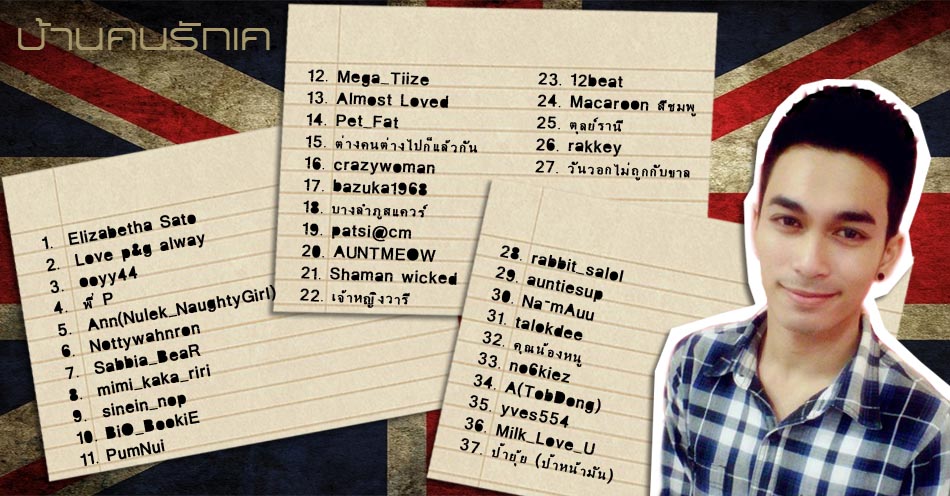 บ้านคนรักเค
1. Elizabetha Sato
2. Love p&g alway
3. ooyy44
4. พี่ P
5. Ann(Nulek_NaughtyGirl)
6. Nottywahnron
7. Sabbia_BeaR
8. mimi_kaka_riri
9. sinein_nop
10. BiO_BookiE
11. PumNui
12. Mega_Tiize
13. Almost Loved
14. Pet_Fat
15. ต่างคนต่างไปก็แล้วกัน
16. crazywoman
17. bazuka1968
18. บางลำภูสแควร์
19. patsi@cm
20. AUNTMEOW
21. Shaman wicked
22. เจ้าหญิงวารี
23. 12beat
24. Macaroon สีชมพู
25. ตุลย์รานี
26. rakkey
27. วันวอกไม่ถูกกับขาล
28. rabbit_salol
29. auntiesup
30. Na-mAuu
31. talokdee
32. คุณน้องหนู
33. no6kiez
34. A(TobDong)
35. yves554
36. Milk_Love_U
37. ป้ายุ้ย (ป้าหน้ามัน)